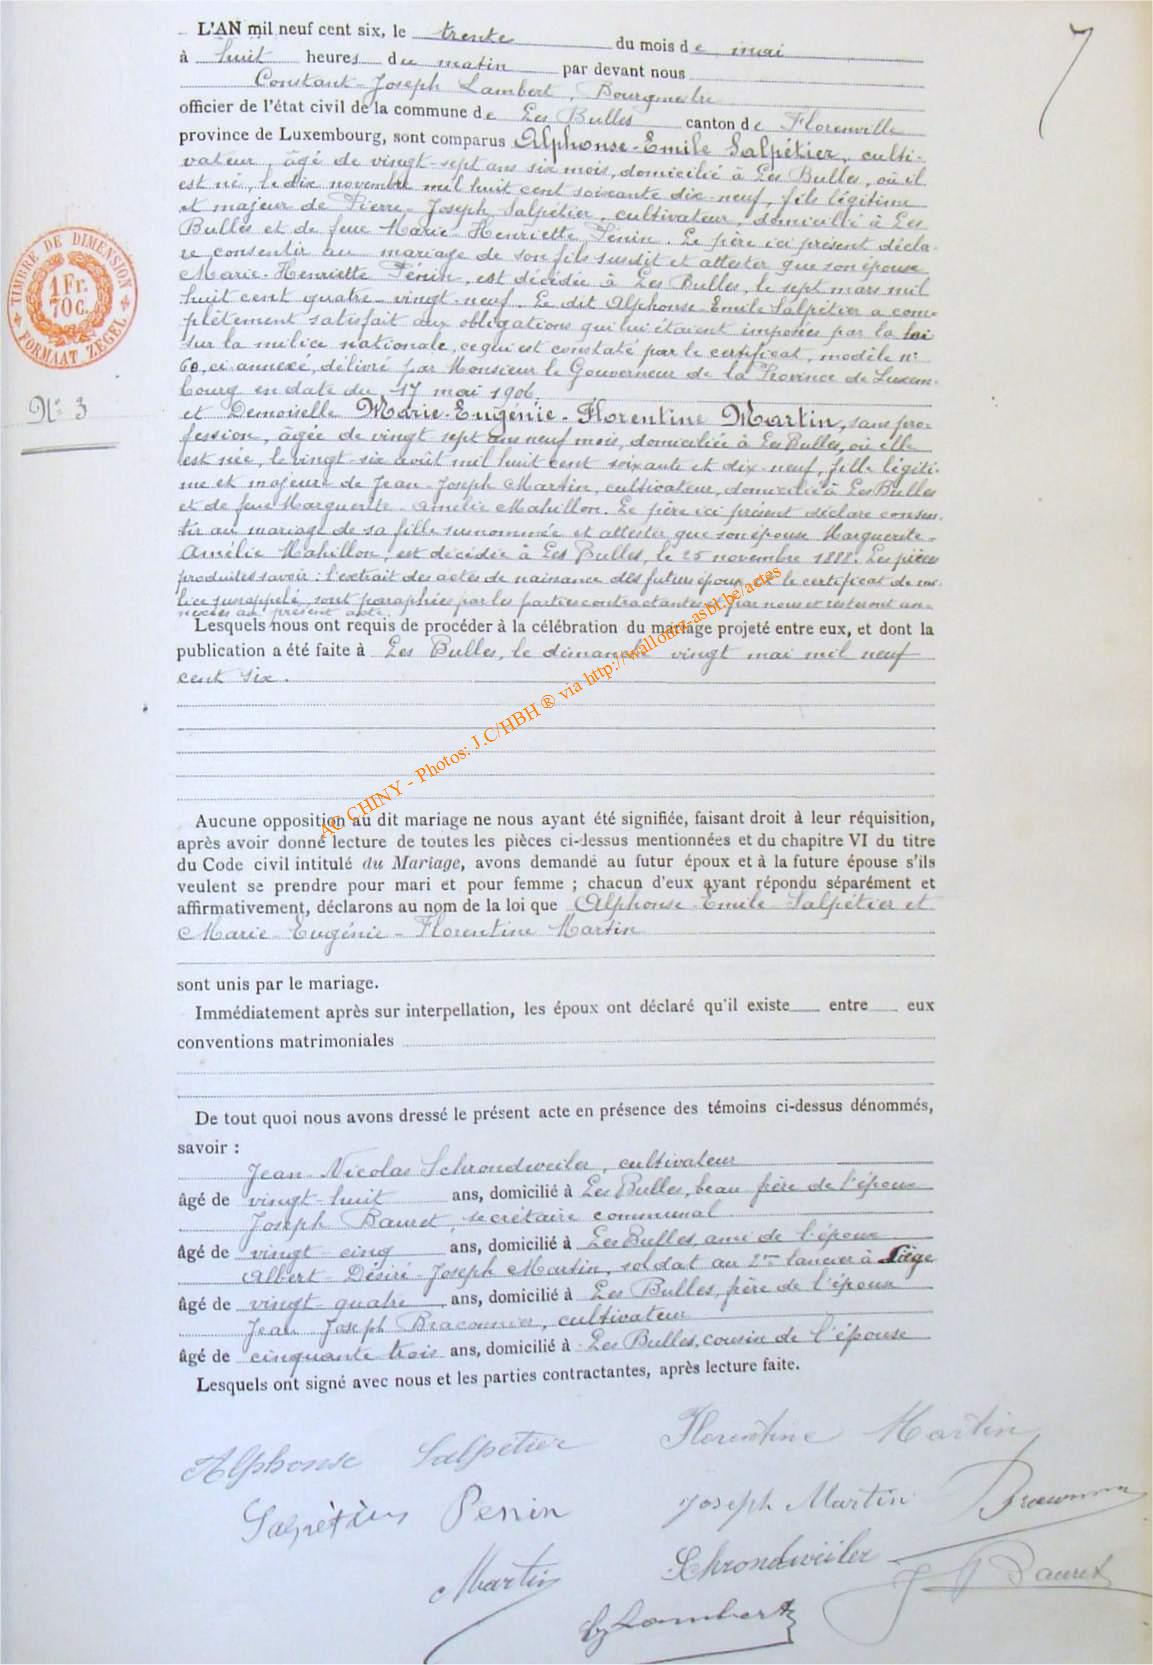 7
L'AN mil neuf cent six, le trente du mois de mai
à huit heures du matin par devant nous
Constant-Joseph Lambert, Bourgmestre
officier de l'état civil de la commune de Les Bulles canton de Florenville
province de Luxembourg, sont comparus Alphonse-Emile Salpétier, culti-
vateur, âgé de vingt-sept ans six mois, domicilié à Les Bulles, où il
est né, le dix novembre mil huit cent soixante dix-neuf, fils légitime
et majeur de Pierre-Joseph Salpétier, cultivateur, domicilié à Les
Bulles et de feue Marie-Henriette Pénin. Le père ici présent décla-
re consentir au mariage de son fils susdit et attester que son épouse
Marie-Henriette Pénin, est décédée à Les Bulles, le sept mars mil
huit cent quatre-vingt-neuf. Le dit Alphonse Emile Salpétier a com-
plètement satisfait aux obligations qui lui étaient imposées par la loi
sur la milice nationale, ce qui est constaté par le certificat, modèle n°
60, ci-annexé, délivré par Monsieur le Gouverneur de la Province de Luxem-
bourg en date du 17 mai 1906.
et Demoiselle Marie-Eugénie-Florentine Martin, sans pro-
fession, âgée de vingt sept ans neuf mois, domiciliée à Les Bulles, où elle
est née, le vingt-six août mil huit cent soixante et dix-neuf, fille légiti-
me et majeure de Jean-Joseph Martin, cultivateur, domicilié à Les Bulles
et de feue Marguerite-Amélie Mahillon. Le père ici présent déclare consen-
tir au mariage de sa fille surnommée et attester que son épouse Marguerite-
Amélie Mahillon, est décédée à Les Bulles, le 25 novembre 1888. Les pièces
produites savoir: l'extrait des actes de naissance des futurs époux et le certificat de mi-
lice susrappelé, sont paraphées par les parties contractantes et par nous et resteront an-
nexées au présent acte.
Lesquels nous ont requis de procéder à la célébration du mariage projeté entre eux, et dont la
publication a été faite à Les Bulles, le dimanche vingt mai mil neuf
cent six.
TIMBRE DE DIMENSION
1 Fr.
70 C.
FORMAAT ZEGEL
N° 3
AC CHINY - Photos: J.C/HBH ® via http://wallonia-asbl.be/actes
Aucune opposition au dit mariage ne nous ayant été signifiée, faisant droit à leur réquisition,
après avoir donné lecture de toutes les pièces ci-dessus mentionnées et du chapitre VI du titre
du Code civil intitulé du Mariage, avons demandé au futur époux et à la future épouse s'ils
veulent se prendre pour mari et pour femme ; chacun d'eux ayant répondu séparément et
affirmativement, déclarons au nom de la loi que Alphonse-Emile Salpétier et
Marie-Eugénie-Florentine Martin
sont unis par le mariage.
Immédiatement après sur interpellation, les époux ont déclaré qu'il existe entre eux
conventions matrimoniales
De tout quoi nous avons dressé le présent acte en présence des témoins ci-dessus dénommés,
savoir :
Jean-Nicolas Schrondweiler, cultivateur
âgé de vingt-huit ans, domicilié à Les Bulles, beau frère de l'époux
Joseph Bauret, secrétaire communal
âgé de vingt-cinq ans, domicilié à Les Bulles, ami de l'époux
Albert-Désiré-Joseph Martin, soldat au 2me lancier à Liège
âgé de vingt-quatre ans, domicilié à Les Bulles, frère de l'époux
Jean Joseph Braconnier, cultivateur
âgé de cinquante trois ans, domicilié à Les Bulles, cousin de l'épouse
Lesquels ont signé avec nous et les parties contractantes, après lecture faite.
Alphonse Salpétier Florentine Martin
Salpétier Penin Joseph Martin
Martin Schrondweiler J Bauret
Lambert